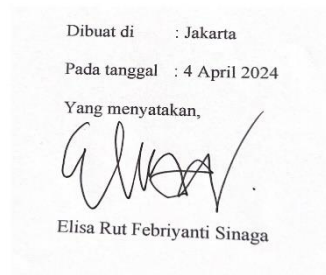 Dibuat di : Jakarta
Pada tanggal : 4 April 2024
Yang menyatakan,
Elisa Rut Febriyanti Sinaga